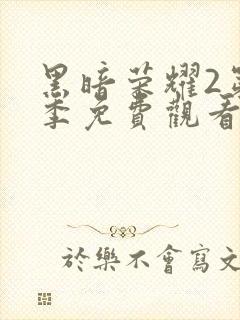 黑暗荣耀2第
季免費觀看
於樂不會寫文